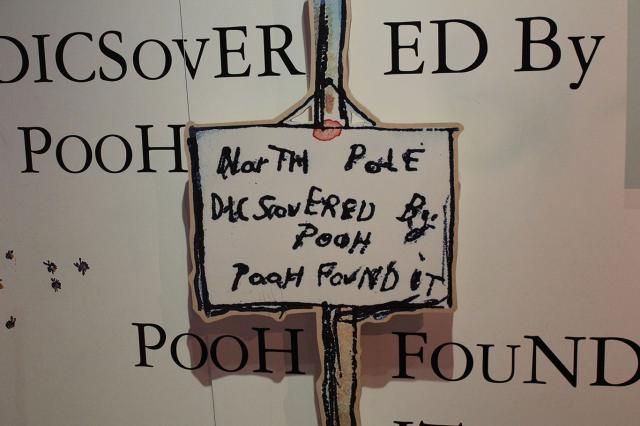 DICSovERED By
PooH
NorTH PoLE
DICSovERED By
PooH
PooH FouND iT
PooH FouND